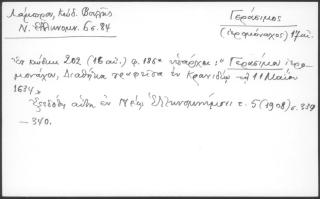 Λάμπρος, Κώδ. Βατλῆς
Ν. Ἑλληνομν. 6 σ. 84
Γεράσιμος
(ἱερομόναχος) 17 αἰ.
Ἐν κώδικι 202 (16 αἰ.) φ. 186α ὑπάρχει: "Γερασίμου ἱερο-
μονάχου, Διαθήκη γραφεῖσα ἐν Κρανιδίῳ τῇ 11 Μαΐου
1634"
Ἐξεδόθη αὕτη ἐν Νέῳ Ἑλληνομνήμονι τ. 5 (1908) σ. 339
—340.